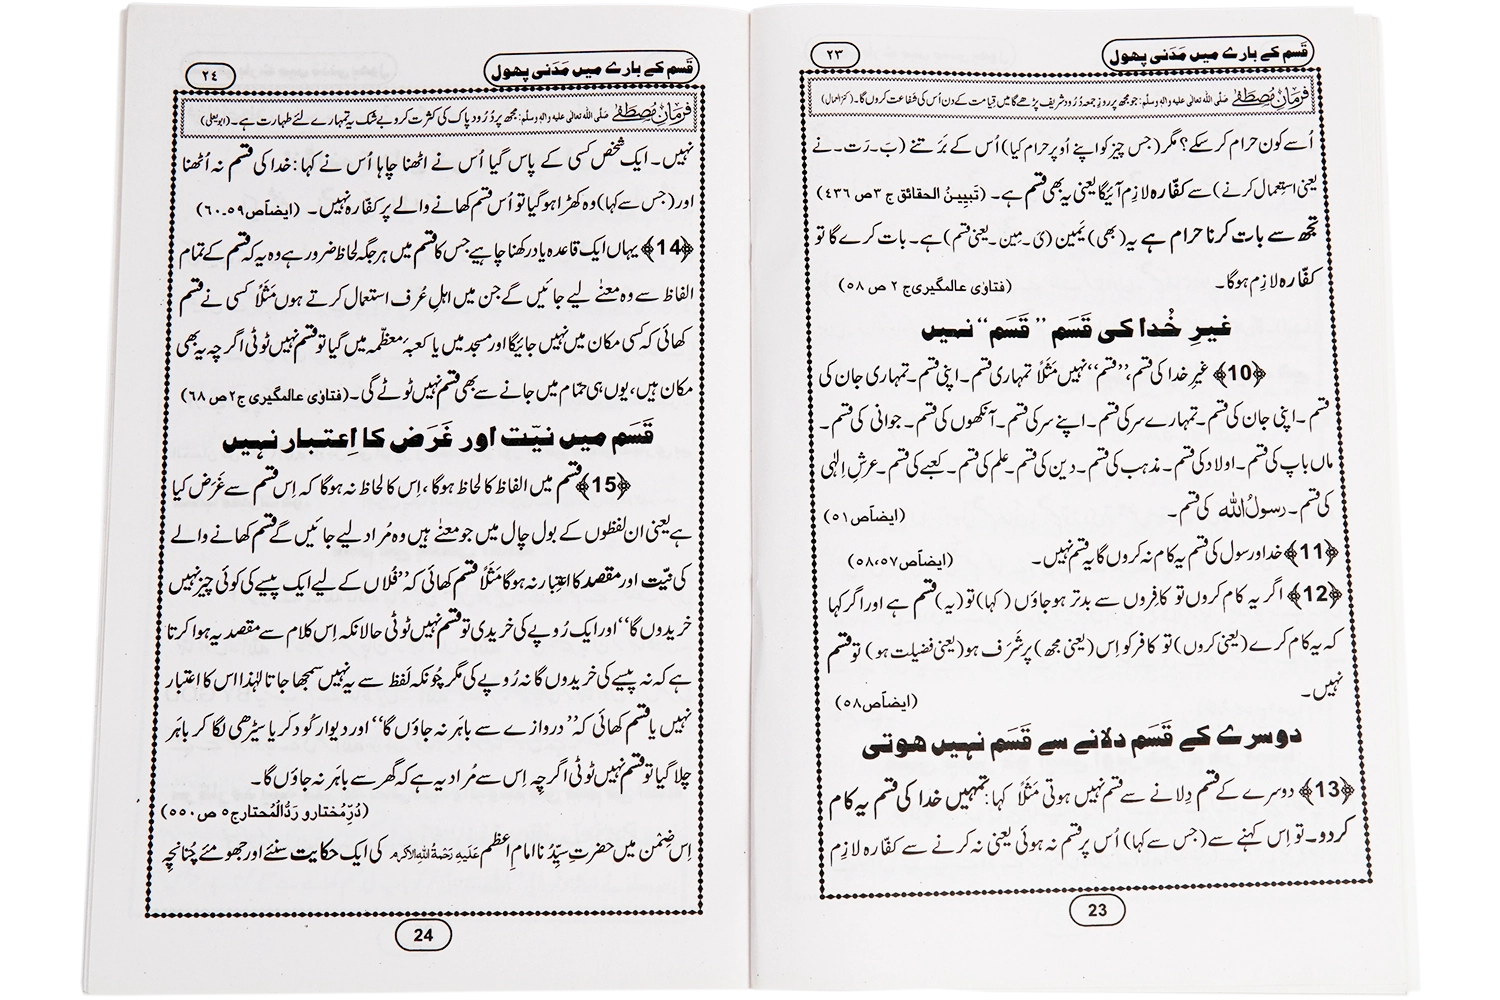 قَسَم کے بارے میں مَدَنی پھول
۲۳
فرمانِ مُصطَفٰے صلَّی اللہ تعالٰی علیہ والہٖ وسلَّم: جو مجھ پر روزِ جمعہ دُرُود شریف پڑھے گا میں قیامت کے دن اُس کی شفاعت کروں گا۔ (کنزالعمال)
اُسے کون حرام کر سکے؟ مگر (جس چیز کو اپنے اُوپر حرام کیا) اُس کے بَرَتنے (بَ۔رَت۔نے
یعنی استِعمال کرنے) سے کفّارہ لازِم آئیگا یعنی یہ بھی قسم ہے۔ (تَبیِینُ الحقائق ج ۳ ص ۴۳۶)
تجھ سے بات کرنا حرام ہے یہ (بھی) یَمین (یَ۔مِین۔یعنی قسم) ہے۔ بات کرے گا تو
کفّارہ لازِم ہوگا۔ (فتاوٰی عالمگیری ج ۲ ص ۵۸)
غیرِ خُدا کی قَسَم ’’قَسَم‘‘ نہیں
﴿10﴾ غیرِ خدا کی قسم، ’’قسم‘‘ نہیں مَثَلاً تمہاری قسم۔ اپنی قسم۔ تمہاری جان کی
قسم۔ اپنی جان کی قسم۔ تمہارے سر کی قسم۔ اپنے سر کی قسم۔ آنکھوں کی قسم۔ جوانی کی قسم۔
ماں باپ کی قسم۔ اولاد کی قسم۔ مذہب کی قسم۔ دین کی قسم۔ علم کی قسم۔ کعبے کی قسم۔ عرشِ الٰہی
کی قسم۔ رسولُ اللہ کی قسم۔ (ایضاً ص ۵۱)
﴿11﴾ خدا و رسول کی قسم یہ کام نہ کروں گا یہ قسم نہیں۔ (ایضاً ص ۵۸،۵۷)
﴿12﴾ اگر یہ کام کروں تو کافِروں سے بدتر ہو جاؤں (کہا) تو (یہ) قسم ہے اور اگر کہا
کہ یہ کام کرے (یعنی کروں) تو کافر کو اِس (یعنی مجھ) پر شَرَف ہو (یعنی فضیلت ہو) تو قسم
نہیں۔ (ایضاً ص ۵۸)
دوسرے کے قَسَم دلانے سے قَسَم نہیں ہوتی
﴿13﴾ دوسرے کے قسم دِلانے سے قسم نہیں ہوتی مَثَلاً کہا: تمہیں خدا کی قسم یہ کام
کر دو۔ تو اِس کہنے سے (جس سے کہا) اُس پر قسم نہ ہوئی یعنی نہ کرنے سے کفّارہ لازِم
23
قَسَم کے بارے میں مَدَنی پھول
۲٤
فرمانِ مُصطَفٰے صلَّی اللہ تعالٰی علیہ والہٖ وسلَّم: مجھ پر دُرُودِ پاک کی کثرت کرو بے شک یہ تمہارے لئے طہارت ہے۔ (ابویعلی)
نہیں۔ ایک شخص کسی کے پاس گیا اُس نے اٹھنا چاہا اُس نے کہا: خدا کی قسم نہ اُٹھنا
اور (جس سے کہا) وہ کھڑا ہو گیا تو اُس قسم کھانے والے پر کفّارہ نہیں۔ (ایضاً ص ۵۹۔۶۰)
﴿14﴾ یہاں ایک قاعدہ یاد رکھنا چاہیے جس کا قسم میں ہر جگہ لحاظ ضرور ہے وہ یہ کہ قسم کے تمام
الفاظ سے وہ معنٰی لیے جائیں گے جن میں اہلِ عُرف استعمال کرتے ہوں مَثَلاً کسی نے قسم
کھائی کہ کسی مکان میں نہیں جائیگا اور مسجد میں یا کعبۂ معظّمہ میں گیا تو قسم نہیں ٹوٹی اگرچہ یہ بھی
مکان ہیں، یوں ہی حمّام میں جانے سے بھی قسم نہیں ٹوٹے گی۔ (فتاوٰی عالمگیری ج ۲ ص ۶۸)
قَسَم میں نیّت اور غَرَض کا اِعتبار نہیں
﴿15﴾ قسم میں الفاظ کا لحاظ ہوگا، اِس کا لحاظ نہ ہوگا کہ اِس قسم سے غَرَض کیا
ہے یعنی ان لفظوں کے بول چال میں جو معنٰے ہیں وہ مُراد لیے جائیں گے قسم کھانے والے
کی نیّت اور مقصد کا اعتِبار نہ ہوگا مَثَلاً قسم کھائی کہ ’’فُلاں کے لیے ایک پیسے کی کوئی چیز نہیں
خریدوں گا‘‘ اور ایک رُوپے کی خریدی تو قسم نہیں ٹوٹی حالانکہ اِس کلام سے مقصد یہ ہوا کرتا
ہے کہ نہ پیسے کی خریدوں گا نہ رُوپے کی مگر چُونکہ لَفظ سے یہ نہیں سمجھا جاتا لہٰذا اس کا اِعتبار
نہیں یا قسم کھائی کہ ’’دروازے سے باہَر نہ جاؤں گا‘‘ اور دیوار کُود کر یا سیڑھی لگا کر باہَر
چلا گیا تو قسم نہیں ٹوٹی اگرچِہ اِس سے مُراد یہ ہے کہ گھر سے باہَر نہ جاؤں گا۔
(دُرِّمُختار و رَدُّالْمُحتار ج ۵ ص ۵۵۰)
اِس ضِمْن میں حضرتِ سیِّدُنا امامِ اعظم عَلَیہِ رَحْمَۃُ اللہِ الاکرم کی ایک حکایت سنئے اور جھومئے چُنانچِہ
24